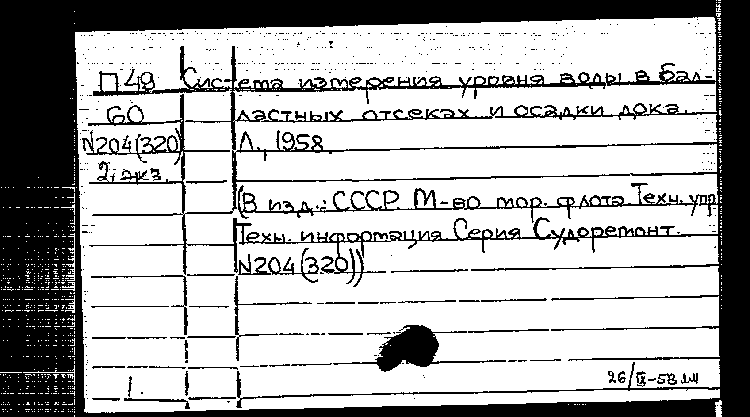 П49 Система измерения уровня воды в бал-
60 ластных отсеках и осадки дока.
N204(320) Л., 1958.
2 экз.
(В изд.: СССР. М-во мор. флота. Техн. упр.
Техн. информация. Серия Судоремонт.
N204(320))
1. 26/IX-58